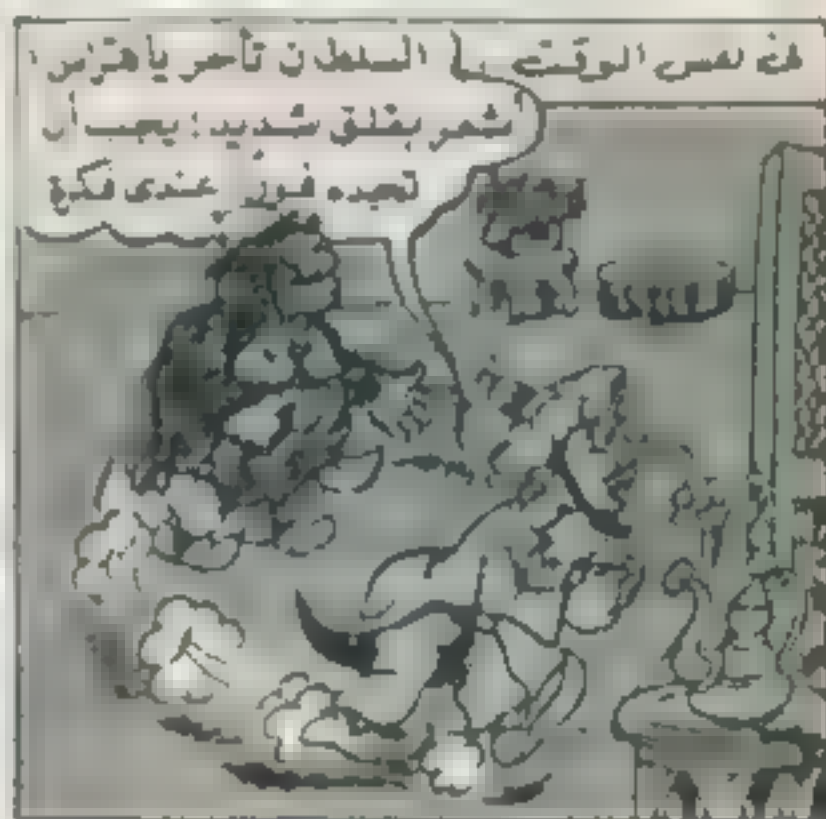 فى نفس الوقت
السلطان تأخر
أشعر بقلق شديد : يجب أن
فوراً عندى فكرة